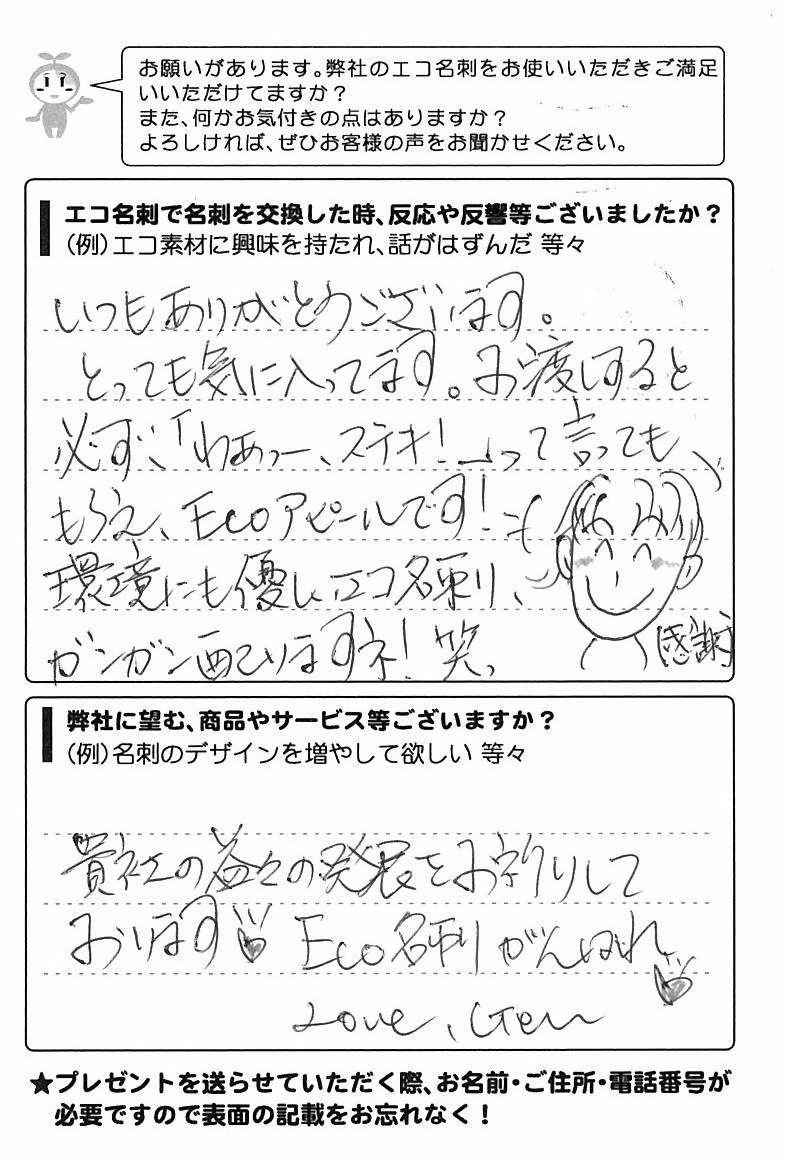 お願いがあります。弊社のエコ名刺をお使いいただきご満足
いいただけてますか？
また、何かお気付きの点はありますか？
よろしければ、ぜひお客様の声をお聞かせください。
エコ名刺で名刺を交換した時、反応や反響等ございましたか？
（例）エコ素材に興味を持たれ、話がはずんだ 等々
いつもありがとうございます。
とっても気に入ってます。お渡しすると
必ず、「わぁっー、ステキ！」って言っても
もらえ、Ecoアピールです！
環境にも優しいエコ名刺、
ガンガン配りますネ！笑
感謝
弊社に望む、商品やサービス等ございますか？
（例）名刺のデザインを増やして欲しい 等々
貴社の益々の発展をお祈りして
おります Eco名刺がんばれ
Love, Gen
★プレゼントを送らせていただく際、お名前・ご住所・電話番号が
必要ですので表面の記載をお忘れなく！